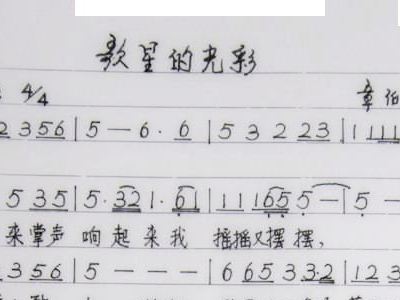 歌星的光彩
4/4 章
2 3 5 6 | 5 — 6 · 6 | 5 3 2 2 3 | 1 1 1 1
5 3 5 | 5 · 3 2 1 · 6 1 | 1 1 1 6 5 5 — | 5 —
来掌声 响起来我 摇摇又摆摆,
2 3 5 6 | 5 — — — | 6 6 5 3 3 · 2 | 1 2 3